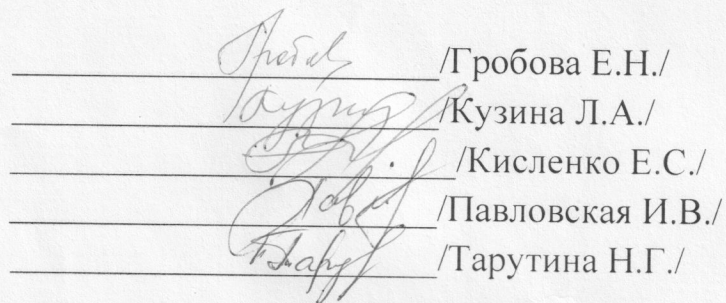 /Гробова Е.Н./
/Кузина Л.А./
/Кисленко Е.С./
/Павловская И.В./
/Тарутина Н.Г./